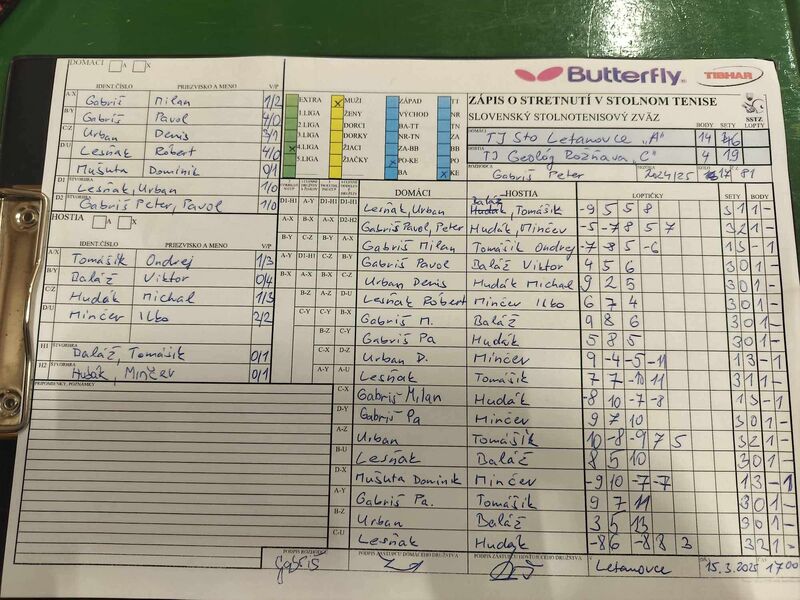 DOMÁCI A X
IDENT.ČÍSLO PRIEZVISKO A MENO V/P
A/X Gabriš Milan 1/2
B/Y Gabriš Pavol 4/0
C/Z Urban Denis 3/1
D/U Lesňák Róbert 4/0
Mušuta Dominik 0/1
D1 ŠTVORHRA Lesňák, Urban 1/0
D2 ŠTVORHRA Gabriš Peter, Pavol 1/0
HOSTIA A X
IDENT.ČÍSLO PRIEZVISKO A MENO V/P
A/X Tomášik Ondrej 1/3
B/Y Baláž Viktor 0/4
C/Z Hudák Michal 1/3
D/U Minčev Ilko 2/2
H1 ŠTVORHRA Baláž, Tomášik 0/1
H2 ŠTVORHRA Hudák, Minčev 0/1
PRIPOMIENKY, POZNÁMKY
EXTRA x MUŽI ZÁPAD TT
1.LIGA ŽENY VÝCHOD NR
2.LIGA DORCI BA-TT TN
3.LIGA DORKY NR-TN ZA
x 4.LIGA ŽIACI ZA-BB BB
5.LIGA ŽIAČKY x PO-KE PO
BA x KE
Butterfly TIBHAR
ZÁPIS O STRETNUTÍ V STOLNOM TENISE
SLOVENSKÝ STOLNOTENISOVÝ ZVÄZ
SSTZ
BODY SETY LOPTY
DOMÁCI TJ Sto Letanovce "A" 14
HOSTIA TJ Geológ Rožňava "C" 4 19
Gabriš Peter 2024/25 81
DOMÁCI HOSTIA LOPTIČKY SETY BODY
Lesňák, Urban Baláž Hudák, Tomášik -9 5 5 8 3 1 1 -
Gabriš Pavol, Peter Hudák, Minčev -5 -7 8 5 7 3 2 1 -
Gabriš Milan Tomášik Ondrej -7 -8 5 -6 1 3 - 1
Gabriš Pavol Baláž Viktor 4 5 6 3 0 1 -
Urban Denis Hudák Michal 9 2 5 3 0 1 -
Lesňák Robert Minčev Ilko 6 7 4 3 0 1 -
Gabriš M. Baláž 9 8 6 3 0 1 -
Gabriš Pa Hudák 5 8 5 3 0 1 -
Urban D. Minčev 9 -4 -5 -11 1 3 - 1
Lesňak Tomášik 7 7 -10 11 3 1 1 -
C-X Gabriš Milan Hudák -8 10 -7 -8 1 3 - 1
D-Y Gabriš Pa Minčev 9 7 10 3 0 1 -
A-Z Urban Tomášik 10 -8 -9 7 5 3 2 1 -
B-U Lesňak Baláž 8 5 10 3 0 1 -
D-X Mušuta Dominik Minčev -9 10 -7 -7 1 3 - 1
A-Y Gabriš Pa. Tomášik 9 7 11 3 0 1 -
B-Z Urban Baláž 3 5 13 3 0 1 -
C-U Lesňak Hudák -8 6 -8 8 3 3 2 1 -
PODPIS ROZHODCU Gabriš PODPIS ZÁSTUPCU DOMÁCEHO DRUŽSTVA PODPIS ZÁSTUPCU HOSŤUJÚCEHO DRUŽSTVA Letanovce 15.3.2025 ČAS 17 00